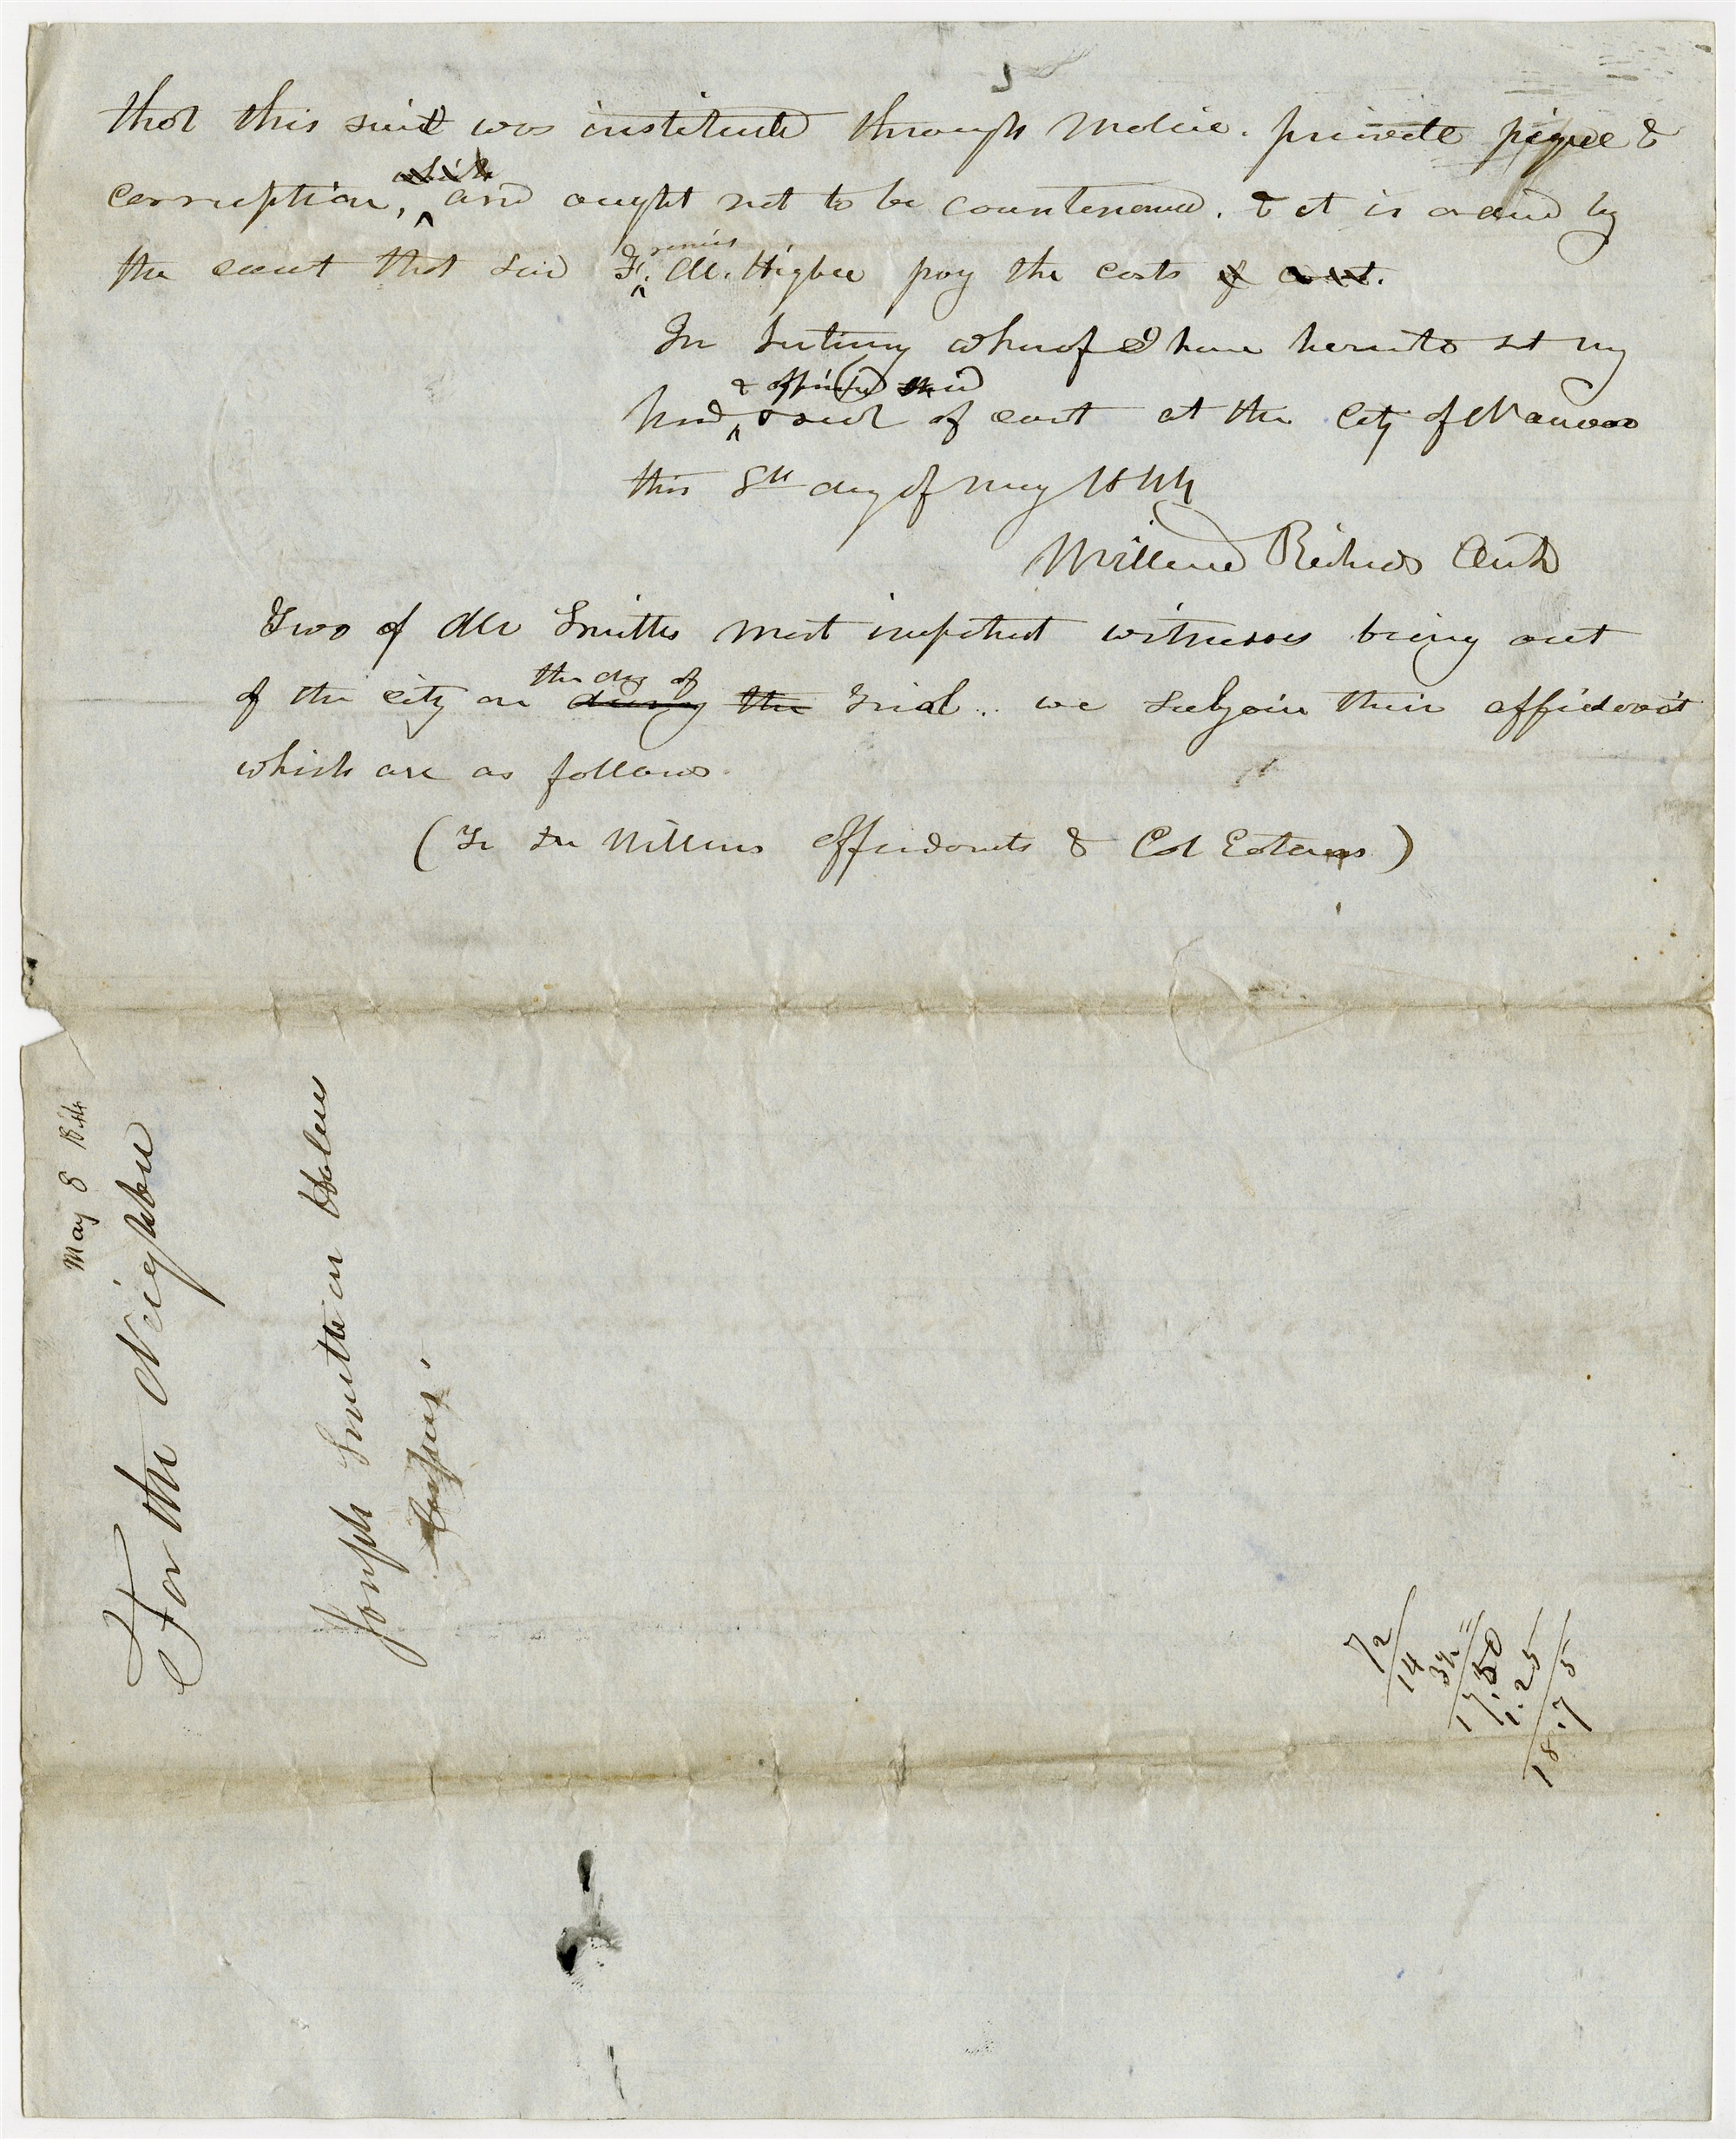 that this suit was institutd through Malice. private pique &
which
corruption, and ought not to be countenancd. & it is ordered by
rancis
the court that said F. M. Higbee pay the costs of court.
In testimny whereof I have hereunto set my
& affixed said
hand & seal of court at the City of Nauvoo
this 8th day of May 1844
Willard Richards Clerk
Two of Mr Smiths most importnt witnesses being out
the day of
of the city on during the trial.. we subjoin their affidavits
which are as follows.
( Dr Willams affidavits & Col )
May 8 1844
For the Neighbor
Joseph Smith on Habeus
Corpus.
7/2
14
3½
17.50
1.25
18.75